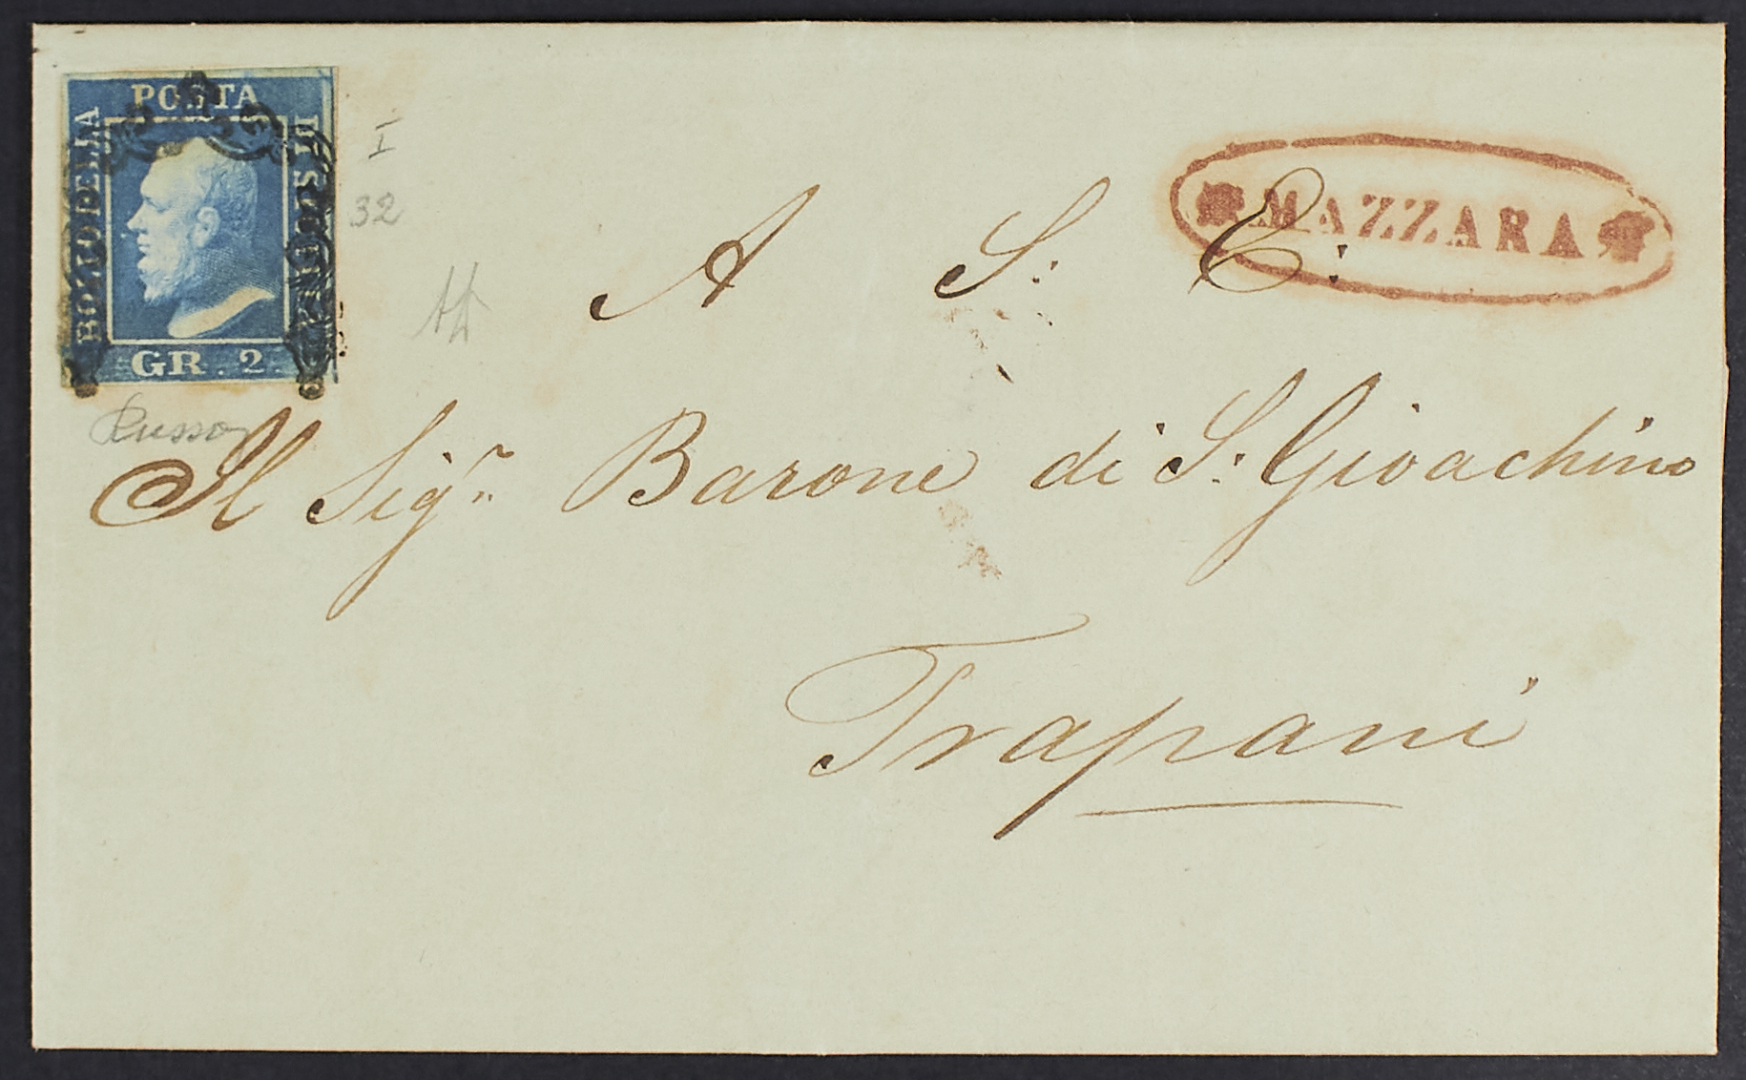 POSTA
BOLLO DELLA
DI SICILIA
GR. 2.
I
32
Russo
MAZZARA
A S: E:
Il Sigr. Barone di S: Gioachino
Trapani